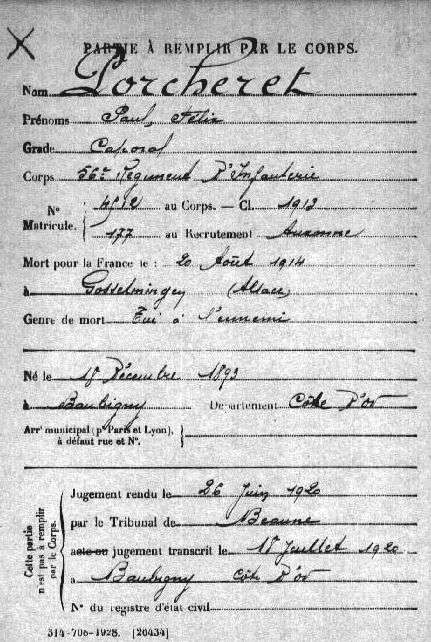 PARTIE À REMPLIR PAR LE CORPS.
Nom Porcheret
Prénoms Paul, Félix
Grade Caporal
Corps 56e Régiment D'Infanterie
N° Matricule. 4512 au Corps. — Cl. 1913
177 au Recrutement Auxonne
Mort pour la France le : 20 Août 1914
à Gosselmingen (Alsace)
Genre de mort Tué à l'ennemi
Né le 18 Décembre 1893
à Baubigny Département Côte D'or
Arrᵗ municipal (pʳ Paris et Lyon),
à défaut rue et N°.
Cette partie n'est pas à remplir par le Corps.
Jugement rendu le 26 Juin 1920
par le Tribunal de Beaune
acte ou jugement transcrit le 18 Juillet 1920
à Baubigny Côte D'or
N° du registre d'état civil
514-708-1928. [26434]